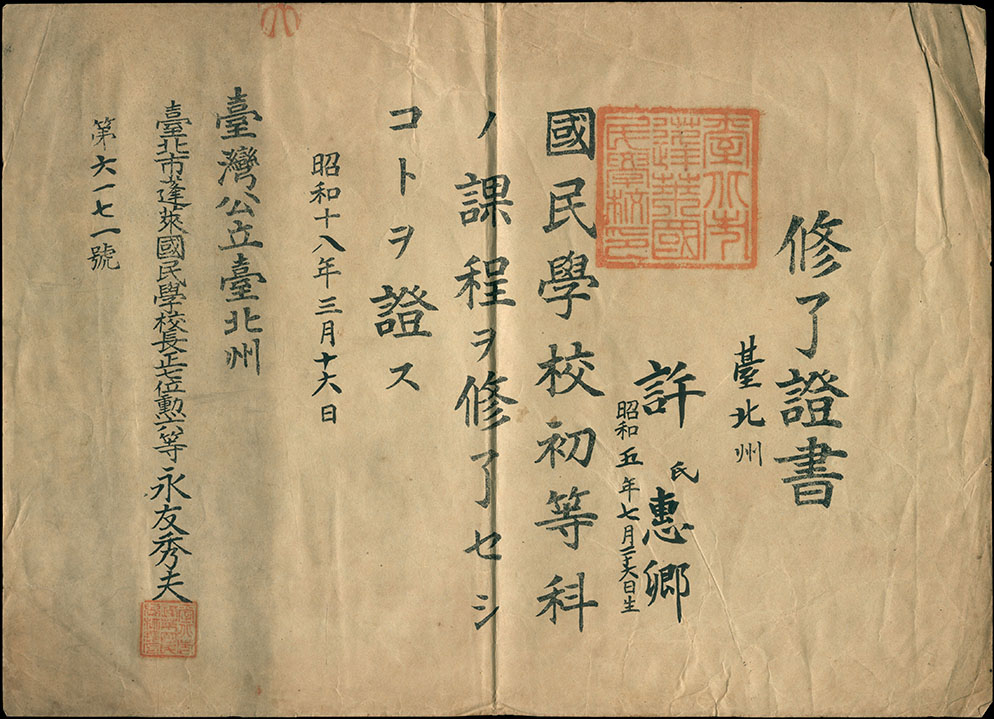 修了證書
臺北州
許氏惠卿
昭和五年七月二十六日生
國民學校初等科
ノ課程ヲ修了セシ
コトヲ證ス
昭和十八年三月十六日
臺灣公立臺北州
臺北市蓬萊國民學校長正七位勲六等永友秀夫
第六一七一號
臺北市
蓬萊國
民學校印